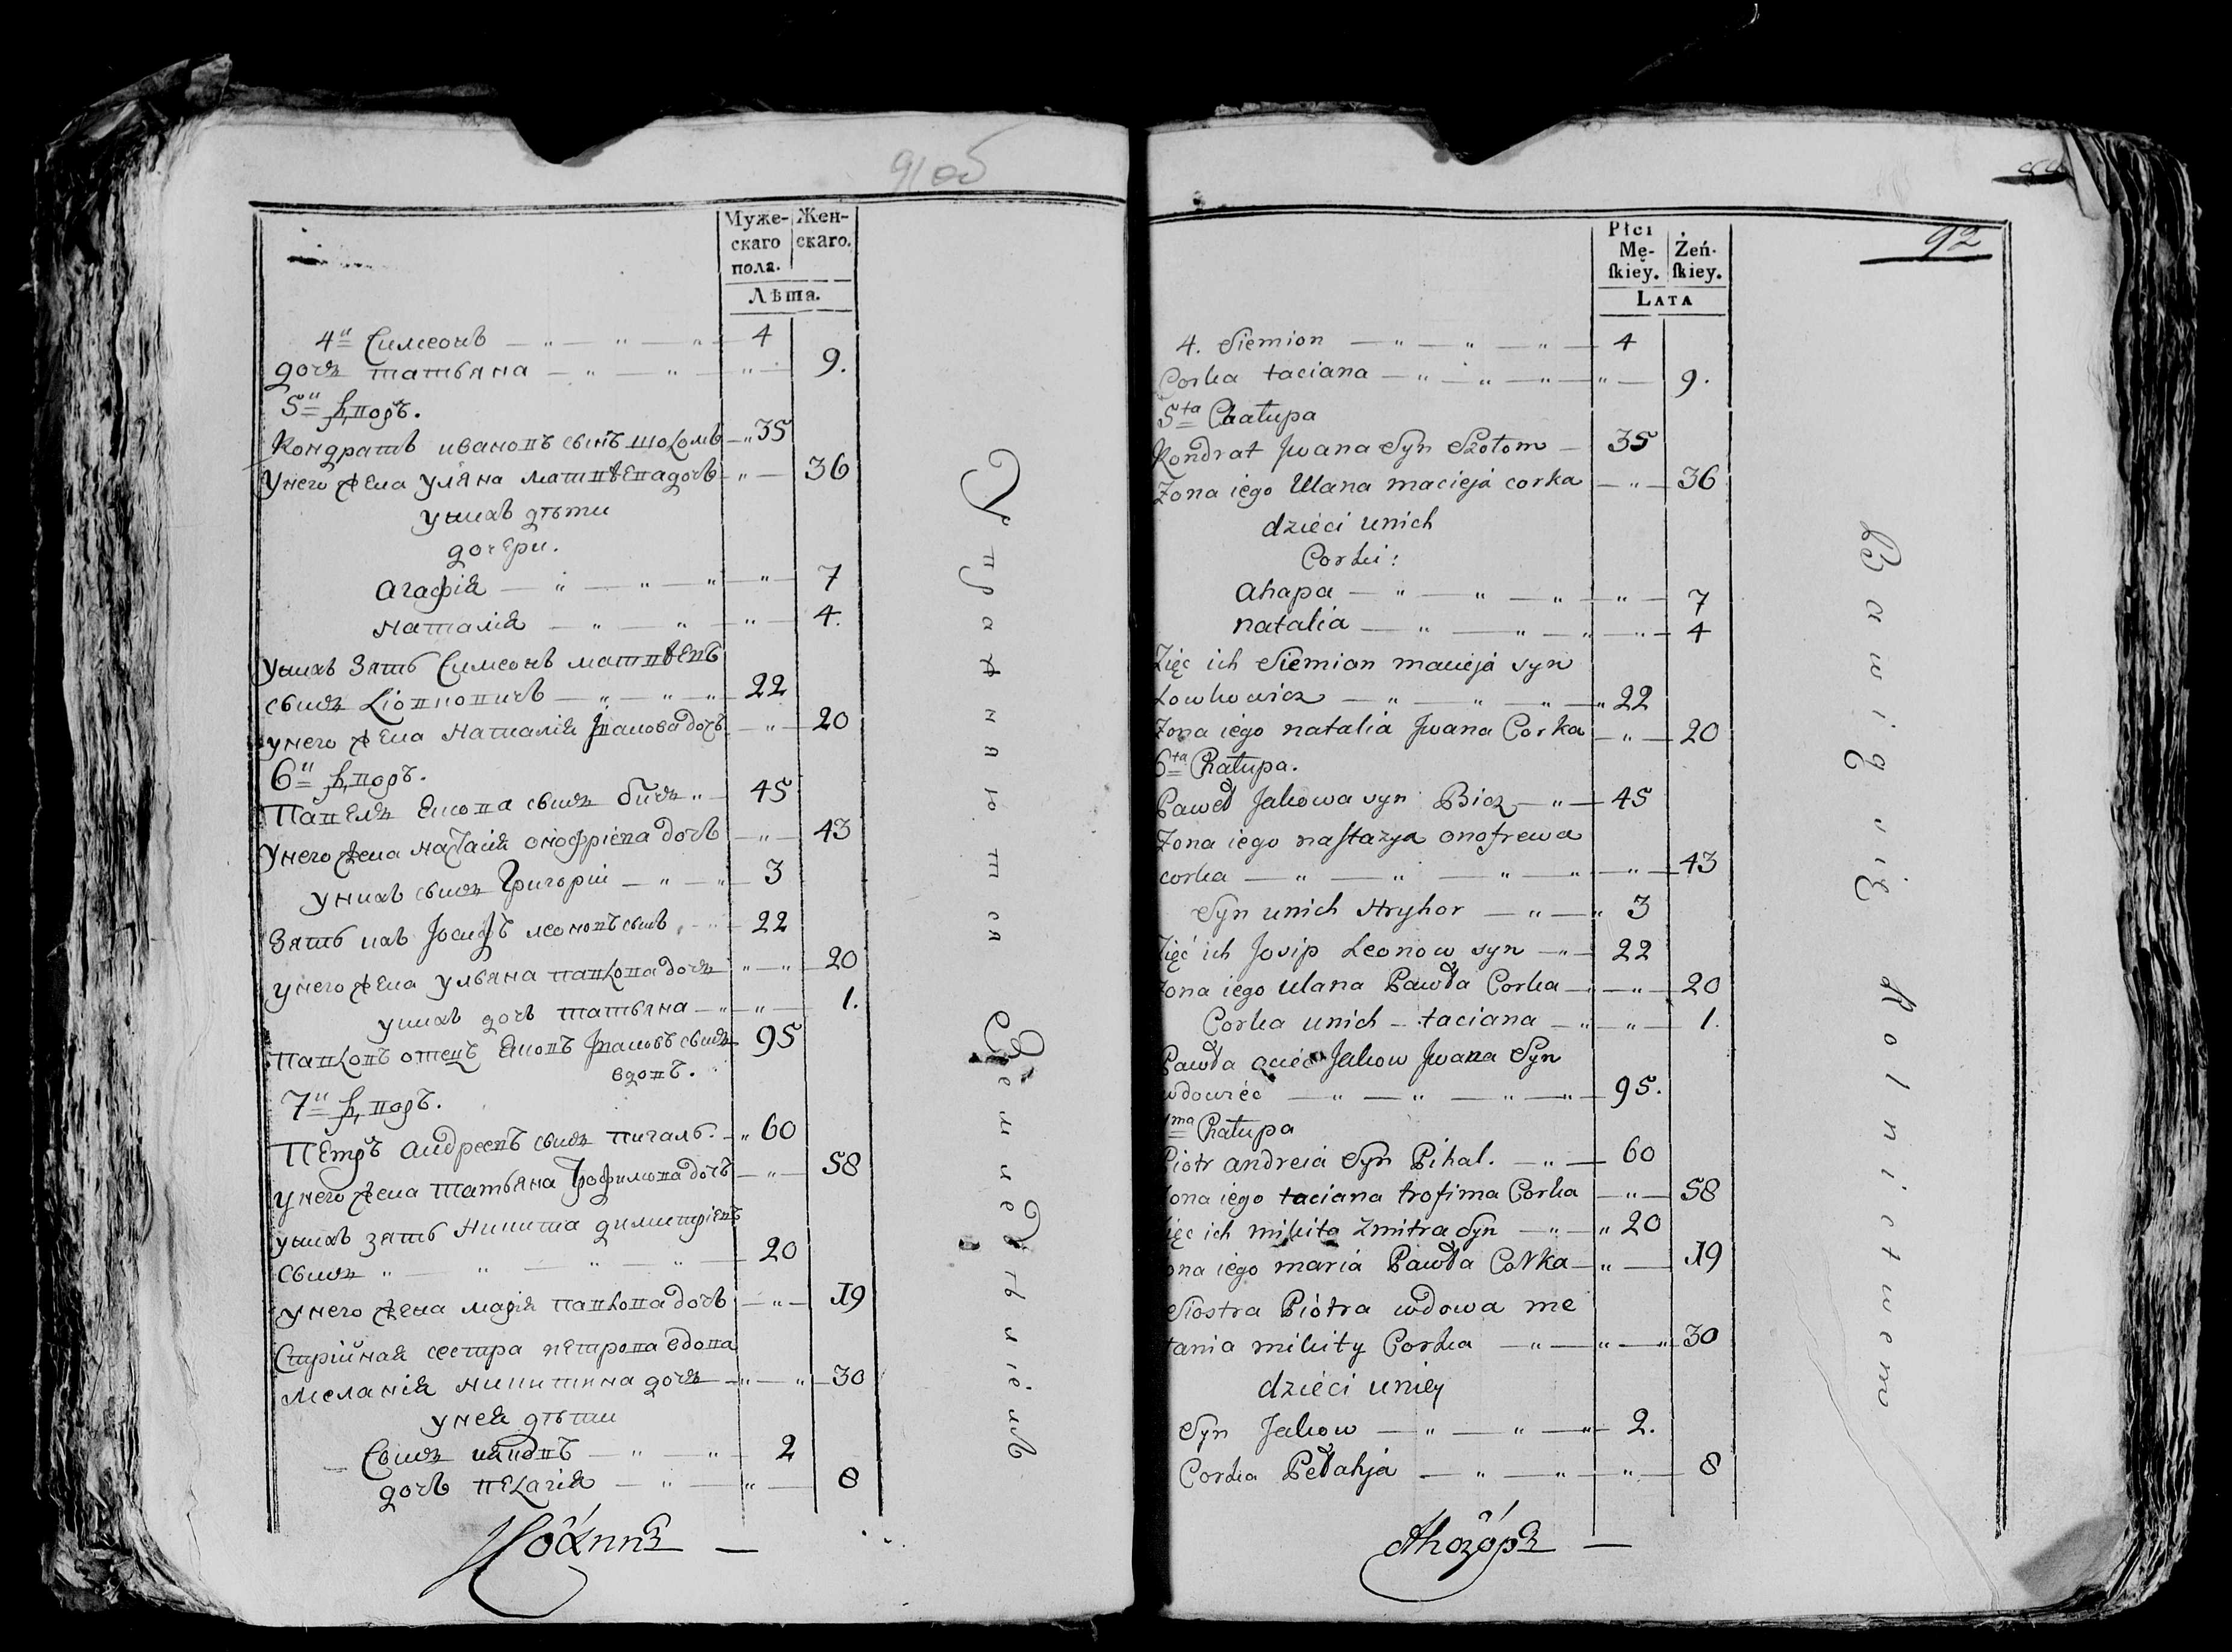 91 об
Муже- Жен-
скаго скаго.
пола.
Лѣта.
4й Симеонъ — „ — „ — „ 4
дочь татьяна — „ — „ — „ — 9.
5й дворъ.
Кондратъ ивановъ сынъ шоломъ — „ 35
Унего жена уляна матвѣева дочь — „ — 36
унихъ дѣти
дочери.
агафiя — „ — „ — „ — „ — 7
наталiя — „ — „ — „ — 4.
Унихъ зять Симеонъ матвѣевъ
сынъ Лiовковичъ — „ — „ — „ 22
унего жена наталiя Iванова дочь — „ — 20
6й дворъ.
Павелъ Якова сынъ бичъ „ — 45
Унего жена настасiя онофрiева дочь — „ — 43
унихъ сынъ Григорiй — „ — „ — 3
Зять ихъ Iосифъ леоновъ сынъ „ — 22
унего жена ульяна павлова дочь „ — „ — 20
унихъ дочь татьяна — „ — „ — 1.
павловъ отецъ Яковъ Iвановъ сынъ 95
вдовъ.
7й дворъ.
Петръ андреевъ сынъ пигаль. — „ 60
унего жена татьяна Трофимова дочь — „ — 58
унихъ зять никита димитрiевъ
сынъ „ — „ — „ — „ — 20
унего жена марiя павлова дочь — „ — 19
Стрiйная сестра петрова вдова
меланiя никитина дочь — „ — „ — 30
унея дѣти
Сынъ яковъ — „ — „ — 2
дочь пелагiя — „ — „ — 8
Упражняются Земледѣлiемъ
Iоаннъ —
92
Płci
Mę- Żeń-
ſkiey. ſkiey.
LATA
4. Siemion — „ — „ — „ — 4
Corka taciana — „ — „ — „ — „ — 9.
5ta Chałupa
Kondrat Jwana Syn Szołom — 35
Zona iego Ulana macieja corka — „ — 36
dzieci unich
Corki:
ahapa — „ — „ — „ — „ — 7
natalia — „ — „ — „ — „ — 4
Zięc ich Siemion macieja syn
Lowkowicz — „ — „ — „ — „ 22
Zona iego natalia Jwana Corka — „ — 20
6ta Chałupa.
Paweł Jakowa syn Bicz — „ — 45
Zona iego naſtazya onofrewa
corka — „ — „ — „ — „ — „ — 43
Syn unich Hryhor — „ — „ 3
Zięć ich Josip Leonow syn — „ — 22
Zona iego ulana Pawła Corka — „ — 20
Corka unich — taciana — „ — „ — 1.
Pawła ociéc Jakow Jwana Syn
wdowiéc — „ — „ — „ — „ — 95.
7ma Chałupa
Piotr andreia Syn Pihal. — „ — 60
Zona iego taciana trofima Corka — „ — 58
Zięc ich mikita Zmitra Syn — „ — „ 20
Zona iego maria Pawła Corka — „ — 19
Siostra Piotra wdowa me
łania mikity Corka — „ — „ — „ 30
dzieci uniey
Syn Jakow — „ — „ — „ — 2.
Corka Pełahja — „ — „ — „ — 8
Bawią się Rolnictwem